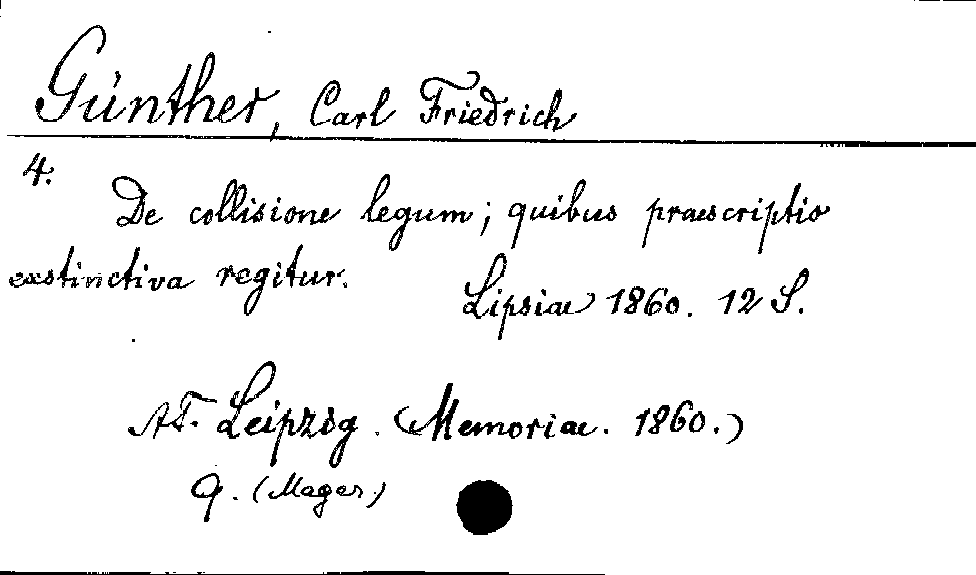 Günther, Carl Friedrich
4.
De collisione legum; quibus praescriptio
exstinctiva regitur.
Lipsiae 1860. 12 S.
AT. Leipzig. (Memoriae. 1860.)
9. (Mager)